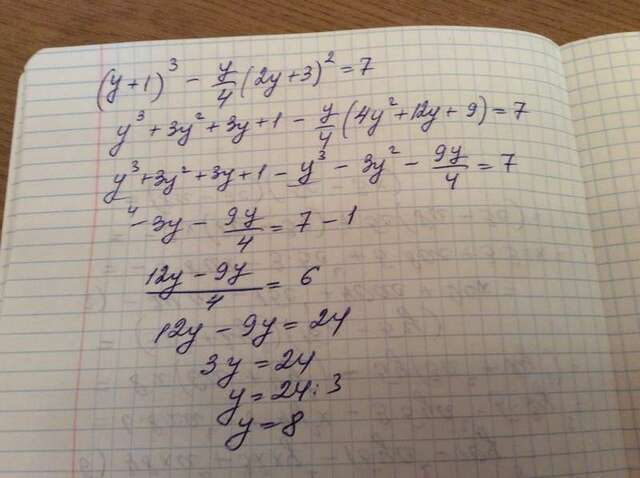 (y+1)³ - y/4 (2y+3)² = 7
y³ + 3y² + 3y + 1 - y/4 (4y² + 12y + 9) = 7
y³ + 3y² + 3y + 1 - y³ - 3y² - 9y/4 = 7
⁴⁻3y - 9y/4 = 7 - 1
(12y - 9y)/4 = 6
12y - 9y = 24
3y = 24
y = 24 : 3
y = 8